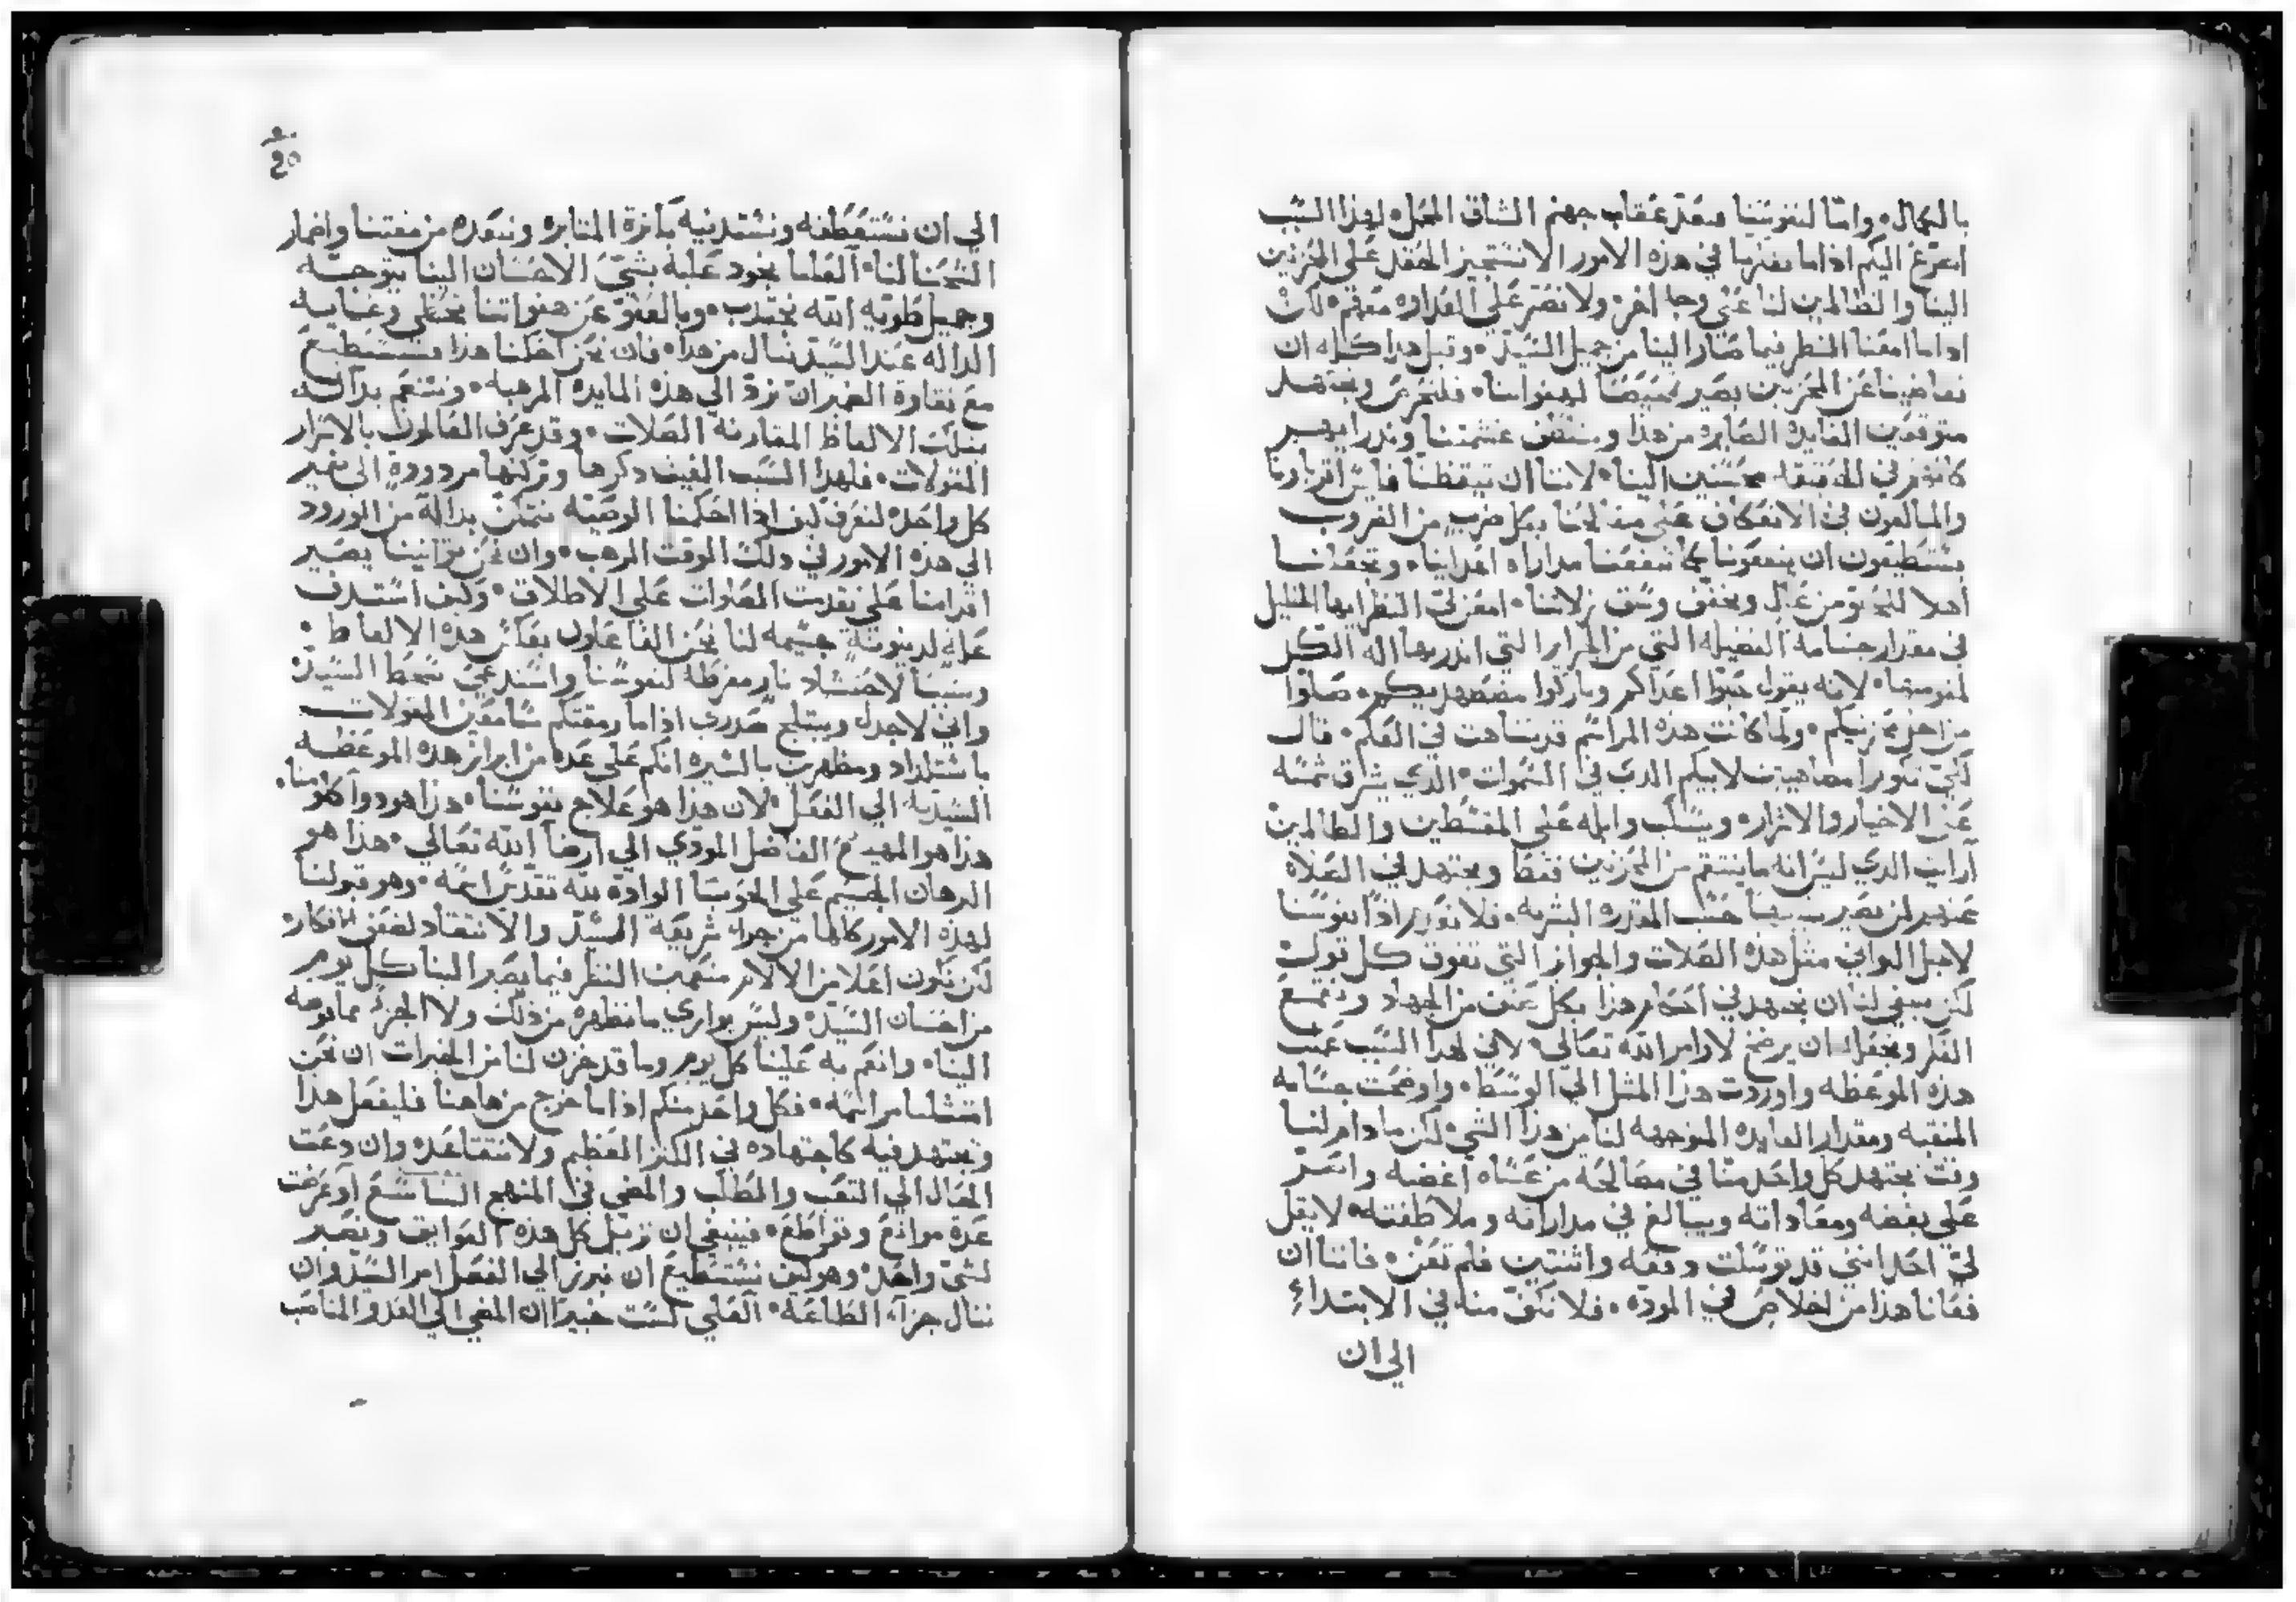 بالكمال • وامّا لنفوسنا فنعدّ عقاب جهنم الشاق المحل • لهذا السبب
اضرع اليكم اذا ما نفكرنا في هذه الامور الا نستجيز الحقد على المحزنين
الينا والظالمين لنا على وجا اخر • ولا نصر على العداوه معهم • لكن
اذا ما امعنا النظر فيما صار الينا من جميل السيّد • وقبل هذا كله ان
تغاضينا عن المحزنين يصير تمحيصًا لهفواتنا • فلنحرص ونجتهد
متوقعين الفايده الصايره من هذا
كانهم في الحقيقه محسنين الينا • لاننا ان تيقظنا فليس اقربارنا
والمبالغون في الانعكاف على مصالحنا بكل ضرب من الضروب
يستطيعون ان ينفعونا كما تنفعنا مداراه اعداينا • وتجعلنا
اهلا للتحنن من عَلُ ويخفف وسق زلاتنا • امعن لي النظر ايها الخليل
في مقدار جسامة الفضيله التي من الجزاير التي انذر بها اله الكل
لمقومتها • لانه يقول حبّوا اعداكم وباركوا مضطهديكم • صلّوا
من اجل محزنيكم • ولما كانت هذه المراسم قد تناهت في العلم • قال
لكي تكونوا مضاهيين لابيكم الذي في السموات • الذي يشرق شمسه
على الاخيار والاشرار • ويسكب وابله على المقسطين والظالمين
أرايت الذي ليس انه ما ينتقم من المحزنين فقط ويجتهد في الصلاه
عنهم حسب المقدره البشريه • فلا نغرر اذًا نفوسنا
لاجل التواني مثل هذه الصلات والجوايز التي تفوق كل قول
لكن ينبغي لنا ان نجتهد في احكام هذا بكل صنف من الجهاد ونقمع
الفكر ونجعله ان يرضخ لاوامر الله تعالى • لاني لهذا السبب عملت
هذه الموعظه واوردت هذا المثل الي الوسط • واوضحت جسامه
المنقبه ومقدار الفايده المتوجهه لنا من هذا الشي • لكن ما دام لنا
وقت يجتهد كل واحد منّا في مصالحة من عساه اغضبه واستمر
على بغضه ومعاداته ويبالغ في مداراته وملاطفته • لا يقل
لي احد انني قد توسلت دفعه واثنتين فلم تغن • فاننا ان
فعلنا هذا من اخلاص في المودّه • فلا نكفّ منه في الابتداء
الي ان
٤٥
الي ان نستعطفه ونستدنيه بآثرة المثابره ونبعده من مقتنا واضمار
الشحنا لنا • العلنا نجود عليه بشي الاحسان الينا يتوجه
وجميل طويه الله نجتذب • وبالعفو عن هفواتنا نحتظي وعنايه
الداله عند السيّد ننال من هذا • فان نحن احكمنا هذا فسنستطيع
مع نقاوة الضمير ان نردّ الي هذه المايده المرهبه • ونتنعم بداله
بتلك الالفاظ المقارنه الصلات • وقد عرف القايلون بالاسرار
المقولات • فلهذا السبب الفيت ذكرها وتركتها مردودة الى ضمير
كل واحد • لنعرف كيف اذا احكمنا الوصيّه نتمكن بداله من الورود
الي هذه الامور في ذلك الوقت المرهب • وان نحن توانينا يصير
اقدامنا على تقدمت الصلوات على الاطلاق
علة لدينونة جسيمه لنا نحن الفاعلون بعكس هذه الالفاظ •
وسببًا لاحتشاد نار مفرطه لنفوسنا واستدعي سخط السيّد
واني لاجدل ويبتهج صدري اذا ما رمقتكم سامعين المقولات
باستلذاذ ومظهرين بالسيره انكم على عدّة من ابراز هذه الموعظه
السيّديه الي الفعل • لان هذا هو علاج نفوسنا • هذا هو دوا كلومنا •
هذا هو المهيع الفاضل المودّي الي ارضآ الله تعالى • هذا هو
البرهان الجسيم على الحوبا الوادّه لله تقدّس اسمه • وهو قبولنا
لهذه الامور كلها من جراء شريعة السيّد والا ننقاد لضعف الافكار
لكن نكون اعلا من الالام منعمين النظر فيما يصير الينا كل يوم
من احسان السيّد • وليس يوازي ما نظهره من ذلك ولا الجزء مما توجه
الينا • وانعم به علينا كل يوم وما قد خزن لنا من الخيرات ان نحن
امتثلنا مراسمه • فكل واحد منكم اذا ما خرج من هاهنا فليفعل هذا
ويجتهد فيه كاجتهاده في الكنز العظيم ولا نتقاعد وان دعت
الحال الي التعب والطلب والمضي في المنهج الشاسع او عرضت
عدة موانع وقواطع • فينبغي ان نزيل كل هذه العوايق ونصير
لشي واحد • وهو كيف نستطيع ان نبرز الي الفعل امر السيّد وان
ننال جزآء الطاعة • العلي لست خبيرًا ان المضي الي العدو والمناصب